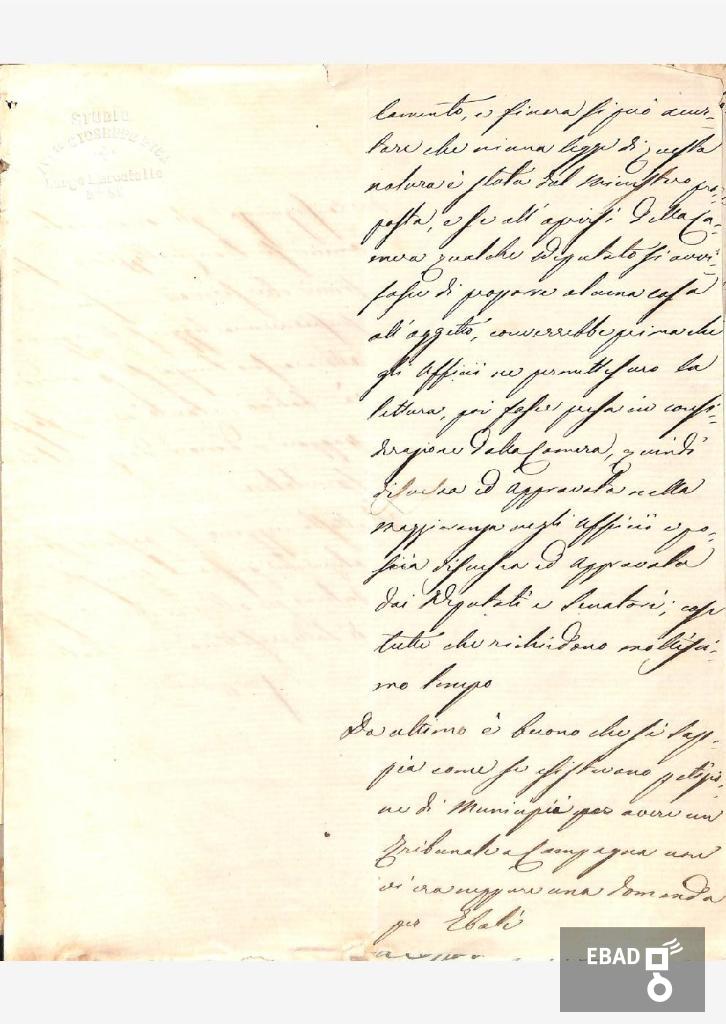 STUDIO
Largo Mercatello
lamento, e finora si può accer=
tare che niuna legge di questa
natura è stata dal Ministero pro=
posta, e se all'aprirsi della Ca=
mera qualche Deputato si avvi=
sasse di proporre alcuna cosa
all'oggetto, converrebbe prima che
gli Ufficii ne permettessero la
lettura, poi fosse presa in consi=
derazione dalla Camera, quindi
discussa ed approvata nella
maggioranza negli Ufficii e po=
scia discussa ed approvata
dai Deputati e Senatori; cose
tutte che richiedono moltissi=
mo tempo
Da ultimo è buono che si sap=
pia come se esistevano petizio=
ne di Municipii per avere un
Tribunale a Campagna non
vi era neppure una domanda
per Eboli
EBAD